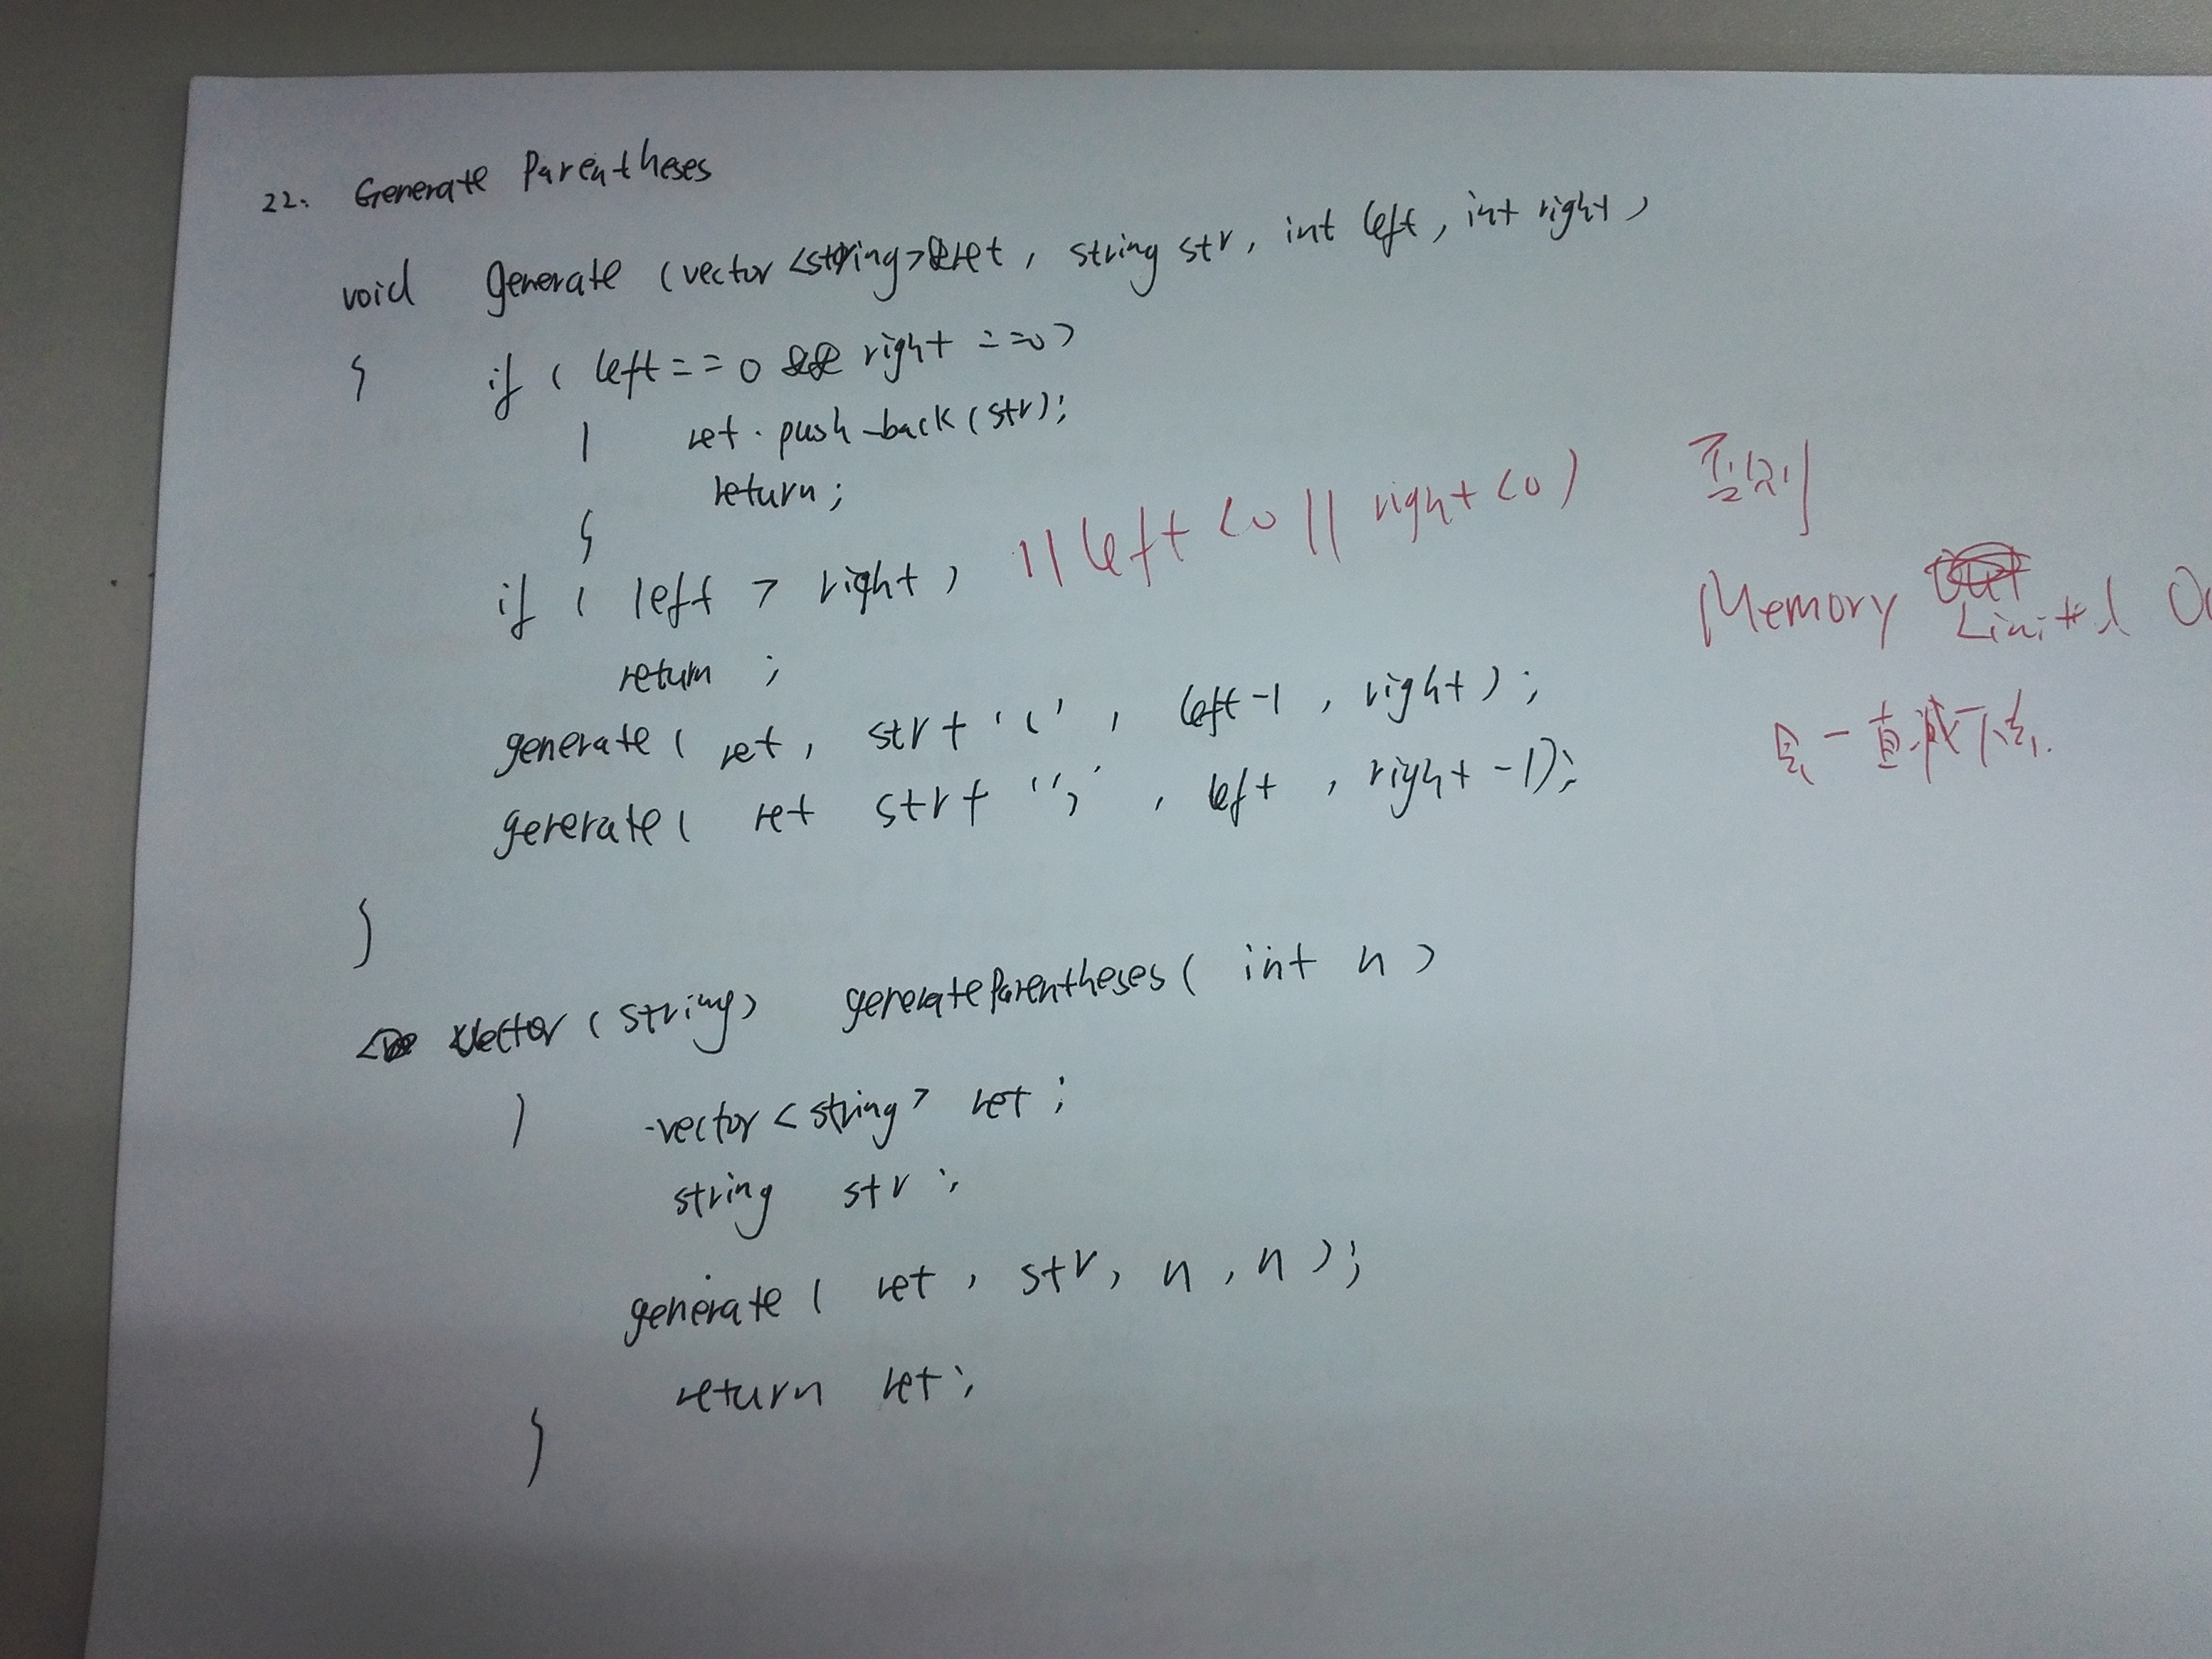 22. Generate Parentheses
void generate (vector <string>&ret, string str, int left, int right)
{ if ( left == 0 && right == 0)
{ ret.push_back(str);
return;
}
if ( left > right ) || left <0 || right <0) 否则
Memory Limited
return ;
会一直减下去.
generate ( ret, str + '(' , left-1 , right) ;
generate ( ret str + ')' , left , right -1);
}
vector (string) generateParentheses ( int n )
{ vector <string> ret ;
string str ;
generate ( ret , str, n , n ) ;
return ret ;
}